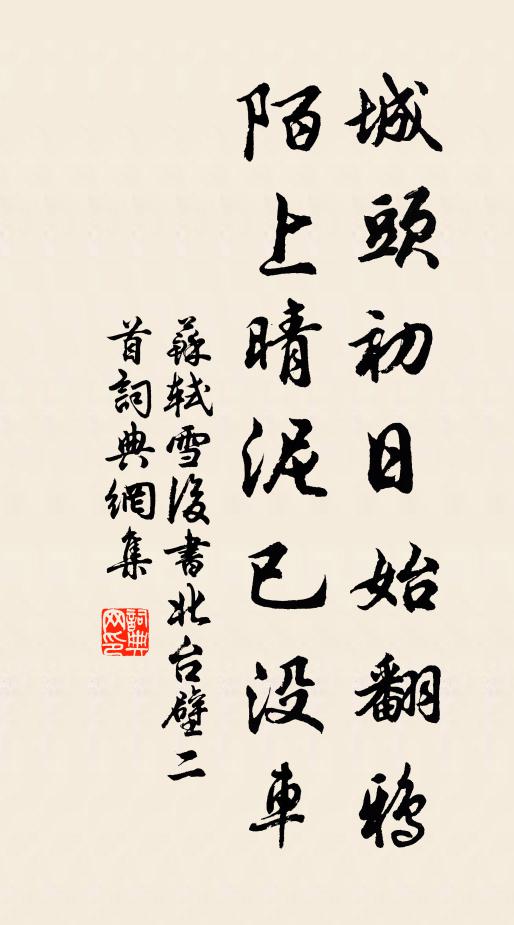 城頭初日始翻鴉
陌上晴泥已没車
蘇軾雪後書北台壁二
首詞典網集
詞典
网印